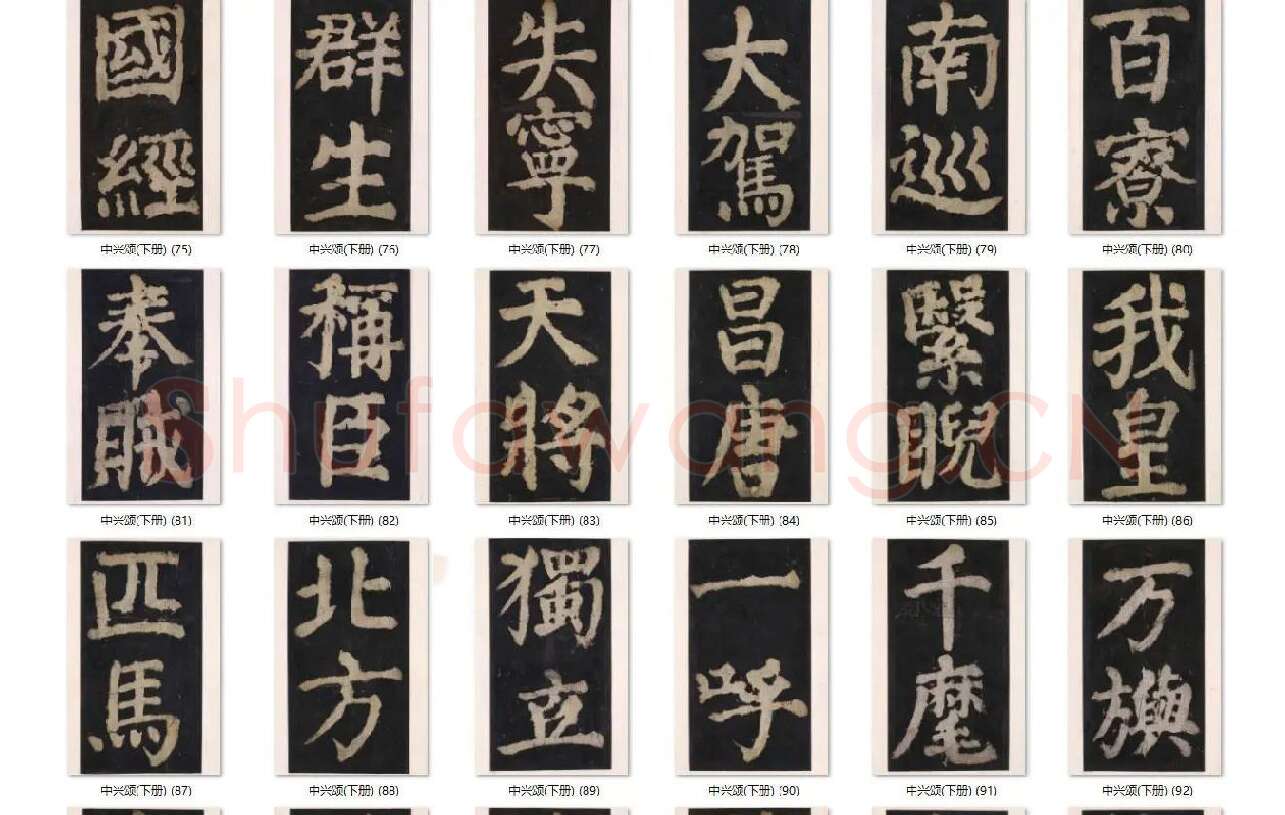 國經 群生 失寧 大駕 南巡 百寮
中兴颂(下册) (75) 中兴颂(下册) (76) 中兴颂(下册) (77) 中兴颂(下册) (78) 中兴颂(下册) (79) 中兴颂(下册) (80)
奉賊 稱臣 天將 昌唐 繄睨 我皇
Shufawang.CN
中兴颂(下册) (81) 中兴颂(下册) (82) 中兴颂(下册) (83) 中兴颂(下册) (84) 中兴颂(下册) (85) 中兴颂(下册) (86)
匹馬 北方 獨立 一呼 千麾 万旟
中兴颂(下册) (87) 中兴颂(下册) (88) 中兴颂(下册) (89) 中兴颂(下册) (90) 中兴颂(下册) (91) 中兴颂(下册) (92)